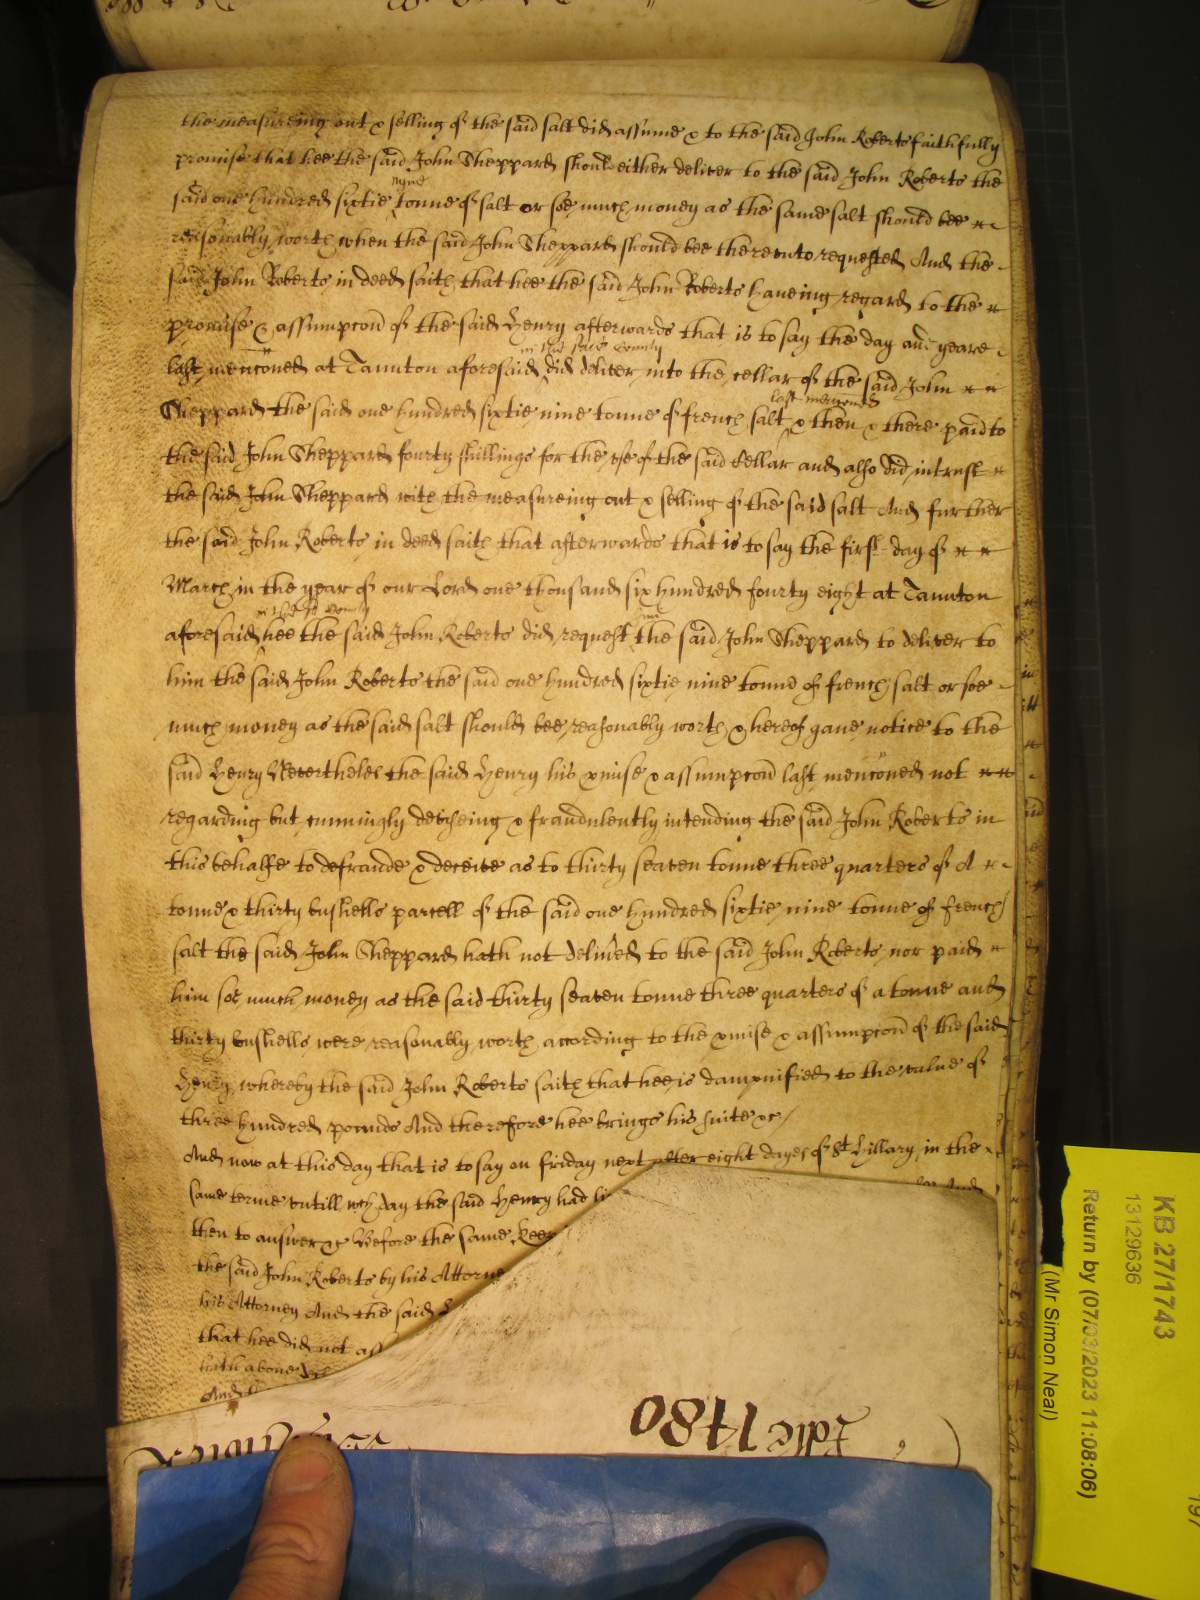 the measureing out & selling of the said salt did assume & to the said John Roberts faithfully
promise that hee the said John Sheppard should either deliver to the said John Roberts the
nyne
said one hundred sixtie tonne of salt or soe much money as the same salt should bee
reasonably worth when the said John Sheppard should bee thereunto requested And the
said John Roberts in deed saith that hee the said John Roberts haveing regard to the
promise & assumpcon of the said Henry afterwards that is to say the day and yeare
in the said County
last menconed at Taunton aforesaid did deliver into the cellar of the said John
last menconed
Sheppard the said one hundred sixtie nine tonne of french salt & then & there paid to
the said John Sheppard fourty shillings for the use of the said Cellar and also did intrust
the said John Sheppard with the measureing out & selling of the said salt And further
the said John Roberts in deed saith that afterwards that is to say the first day of
March in the year of our Lord one thousand six hundred fourty eight at Taunton
in the sd County
aforesaid hee the said John Roberts did request the said John Sheppard to deliver to
him the said John Roberts the said one hundred sixtie nine tonne of french salt or soe
much money as the said salt should bee reasonably worth & hereof gave notice to the
said Henry Neverthelesse the said Henry his pmise & assumpcon last menconed not
regarding but cunningly deviseing & fraudulently intending the said John Roberts in
this behalfe to defraude & deceive as to thirty seaven tonne three quarters of A
tonne & thirty bushells parcell of the said one hundred sixtie nine tonne of french
salt the said John Sheppard hath not delived to the said John Roberts nor paid
him soe much money as the said thirty seaven tonne three quarters of a tonne and
thirty bushells were reasonably worth according to the pmise & assumpcon of the said
Henry whereby the said John Roberts saith that hee is dampnified to the value of
three hundred pounds And therefore hee brings his suite &c
And now at this day that is to say on friday next after eight dayes of St Hillary in the
same terme untill wch day the said Henry had
then to answer &c Before the same
the said John Roberts by his Attorne
his Attorney And the said
that hee did not
hath above
And
Rolle 1480
KB 27/1743
13129636
Return by (07/03/2023 11:08:06)
(Mr Simon Neal)